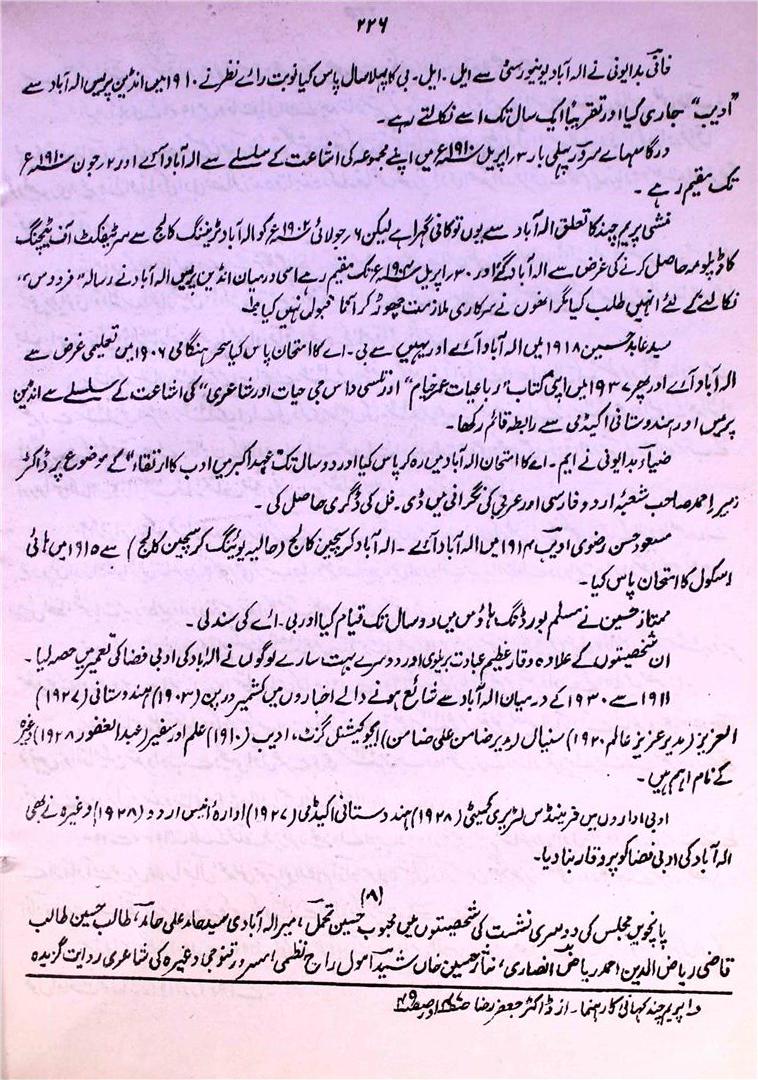 ۲۲۶
فانی بدایونی نے الہ آباد یونیورسٹی سے ایل۔ایل۔بی کا پہلا سال پاس کیا نوبت رائے نظر نے ۱۹۱۰ میں انڈین پریس الہ آباد سے
"ادیب" جاری کیا اور تقریباً ایک سال تک اسے نکالتے رہے۔
درگا سہائے سرور پہلی بار ۳؍ اپریل ۱۹۱۰ء میں اپنے مجموعہ کی اشاعت کے سلسلے سے الہ آباد آئے اور ۲؍ جون ۱۹۱۰ء
تک مقیم رہے۔
منشی پریم چند کا تعلق الہ آباد سے یوں تو کافی گہرا ہے لیکن ۶؍ جولائی ۱۹۰۲ء کو الہ آباد ٹریننگ کالج سے سرٹیفکٹ آف ٹیچنگ
کا ڈپلومہ حاصل کرنے کی غرض سے الہ آباد گئے اور ۳۰؍ اپریل ۱۹۰۴ء تک مقیم رہے اسی درمیان انڈین پریس الہ آباد نے رسالہ "فردوس"
نکالنے کے لئے انہیں طلب کیا مگر انھوں نے سرکاری ملازمت چھوڑ کر آنا قبول نہیں کیا
سید عابد حسین ۱۹۱۸ میں الہ آباد آئے اور یہیں سے بی۔اے کا امتحان پاس کیا سحر ہنگامی ۱۹۰۶ میں تعلیمی غرض سے
الہ آباد آئے اور پھر ۱۹۳۷ میں اپنی کتاب "رباعیات عمر خیام" اور تلسی داس جی حیات اور شاعری" کی اشاعت کے سلسلے سے انڈین
پریس اور ہندوستانی اکیڈمی سے رابطہ قائم رکھا۔
ضیاء بدایونی نے ایم۔اے کا امتحان الہ آباد میں رہ کر پاس کیا اور دو سال تک "عہد اکبر میں ادب کا ارتقاء" کے موضوع پر ڈاکٹر
زبیر احمد صاحب شعبۂ اردو فارسی اور عربی کی نگرانی میں ڈی۔فل کی ڈگری حاصل کی۔
مسعود حسن رضوی ادیب ۱۹۱۴ میں الہ آباد آئے۔ الہ آباد کرسچین کالج (حالیہ یوئینگ کرسچین کالج) سے ۱۹۱۵ میں ہائی
اسکول کا امتحان پاس کیا۔
ممتاز حسین نے مسلم بورڈنگ ہاؤس میں دو سال تک قیام کیا اور بی۔اے کی سند لی۔
ان شخصیتوں کے علاوہ وقار عظیم عبادت بریلوی اور دوسرے بہت سارے لوگوں نے الہ آباد کی ادبی فضا کی تعمیر میں حصہ لیا۔
۱۹۱۱ سے ۱۹۳۰ کے درمیان الہ آباد سے شائع ہونے والے اخباروں میں کشمیر درپن (۱۹۰۳) ہندوستانی (۱۹۲۷)
العزیز (مدیر عزیز عالم ۱۹۲۰) سنیال (مدیر ضامن علی ضامن) ایجوکیشنل گزٹ، ادیب (۱۹۱۰) علم اور سفیر (عبدالغفور ۱۹۲۸) وغیرہ
کے نام اہم ہیں۔
ادبی اداروں میں فرینڈس لٹریری کمیٹی (۱۹۲۸) ہندوستانی اکیڈمی (۱۹۲۷) ادارہ انیس اردو (۱۹۲۸) وغیرہ نے بھی
الہ آباد کی ادبی فضا کو پر وقار بنا دیا۔
(۸)
پانچویں مجلس کی دوسری نشست کی شخصیتوں میں محبوب حسین تحمل، میر الہ آبادی سید حامد علی حامد، طالب حسین طالب
قاضی ریاض الدین احمد ریاض انصاری، نثار حسین خاں شیدا، مول راج نظمی، سرور قنوجی وغیرہ کی شاعری روایت گزیدہ
۱ پریم چند کہانی کا رہنما۔ از ڈاکٹر جعفر رضا ص ۴۷ اور ص ۴۹